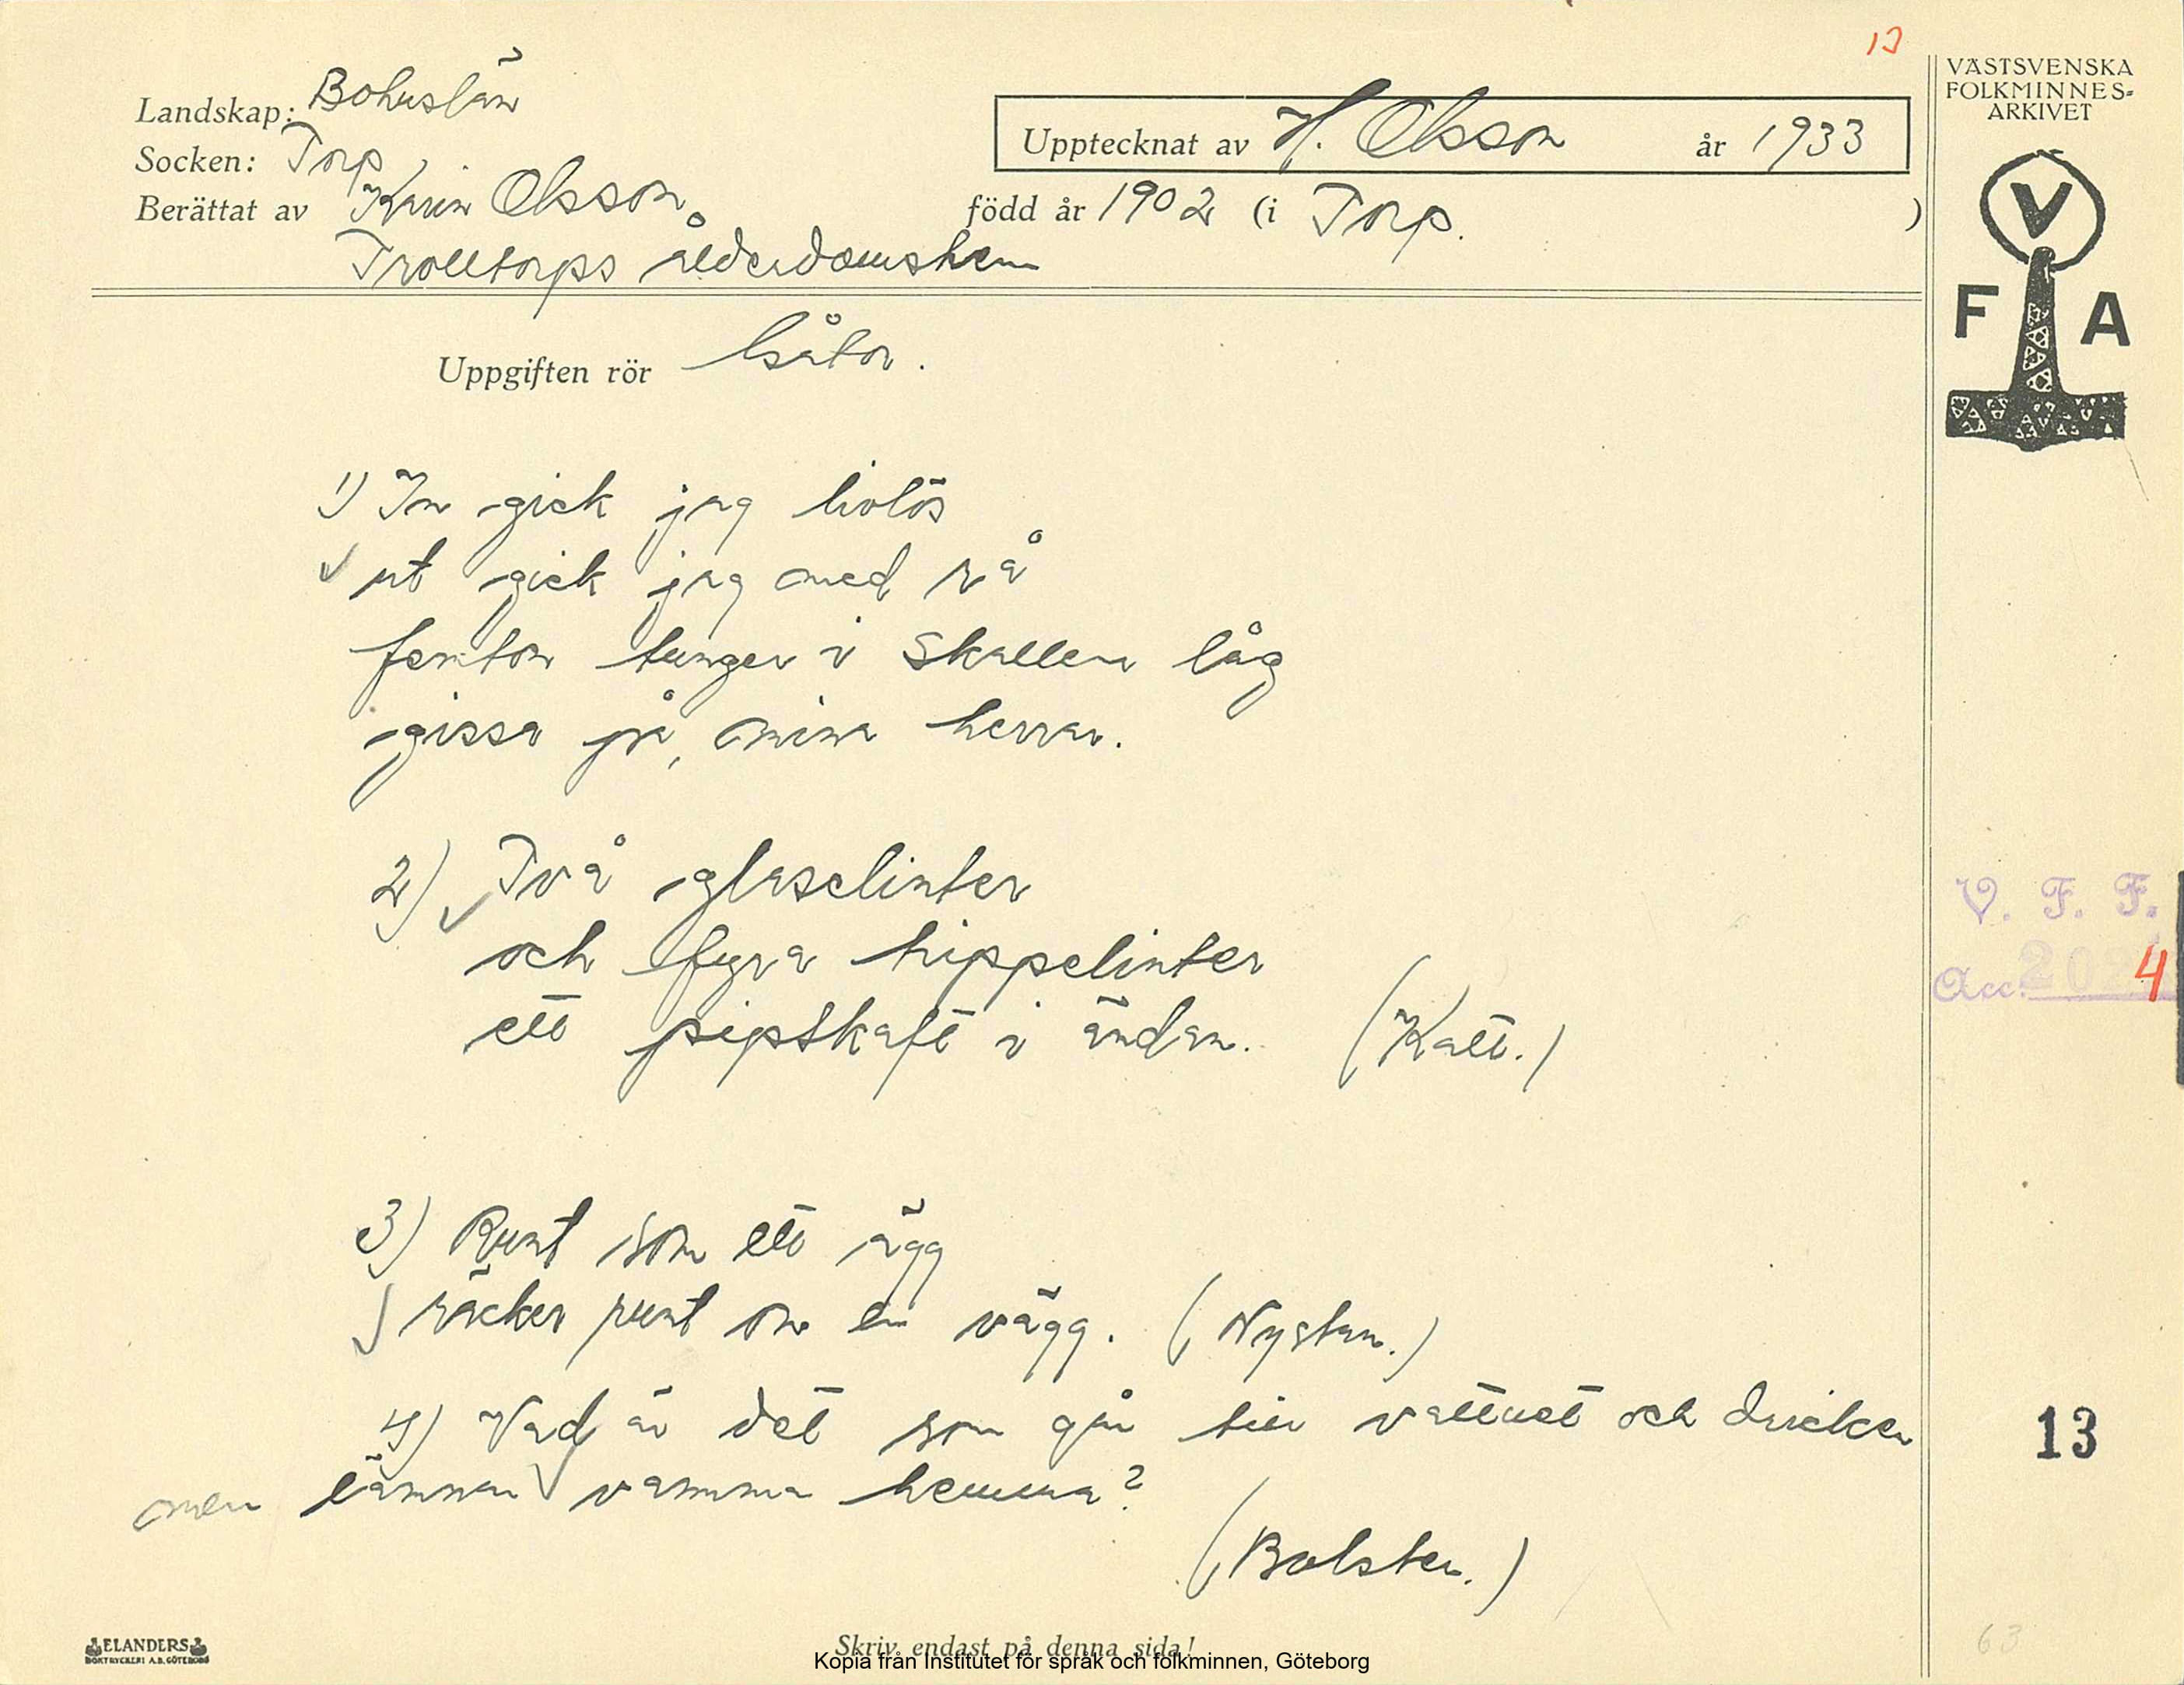 13
Landskap: Bohuslän
Socken: Torp
Berättat av Karin Olsson,
Trolltorps ålderdomshem
Upptecknat av H. Olsson år 1933
född år 1902 (i Torp. )
VÄSTSVENSKA
FOLKMINNES-
ARKIVET
V
F A
Uppgiften rör Gåtor.
1) In gick jag livlös
ut gick jag med rå
femton tunger i skallen låg
gissa på, mina herrar.
2) Två glaselinter
och fyra hippelinter
ett pipskaft i ändan. (Katt.)
V. F. F.
Acc. 202 4
3) Runt som ett ägg
räcker runt om en vägg. (Nystan.)
4) Vad är det som går till vattnet och dricker
men lämnar vamma hemma?
(Bolster.)
13
63
ELANDERS
BOKTRYCKERI A.B. GÖTEBORG
Skriv endast på denna sida!
Kopia från Institutet för språk och folkminnen, Göteborg